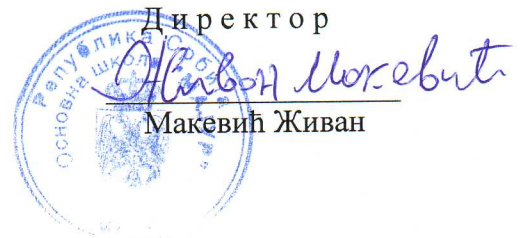 Директор
Живан Макевић
Макевић Живан
Република Србија
Основна школа